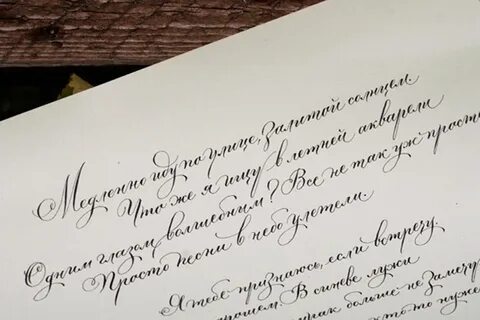 Медленно иду по улице, Залитой солнцем.
Что же я ищу в летней акварели
Одним глазом волшебным? Все не так уж просто
Просто песни в небо улетели.
Я тебе признаюсь, если встречу.
В синеве лужи
больше не замечу
нуже